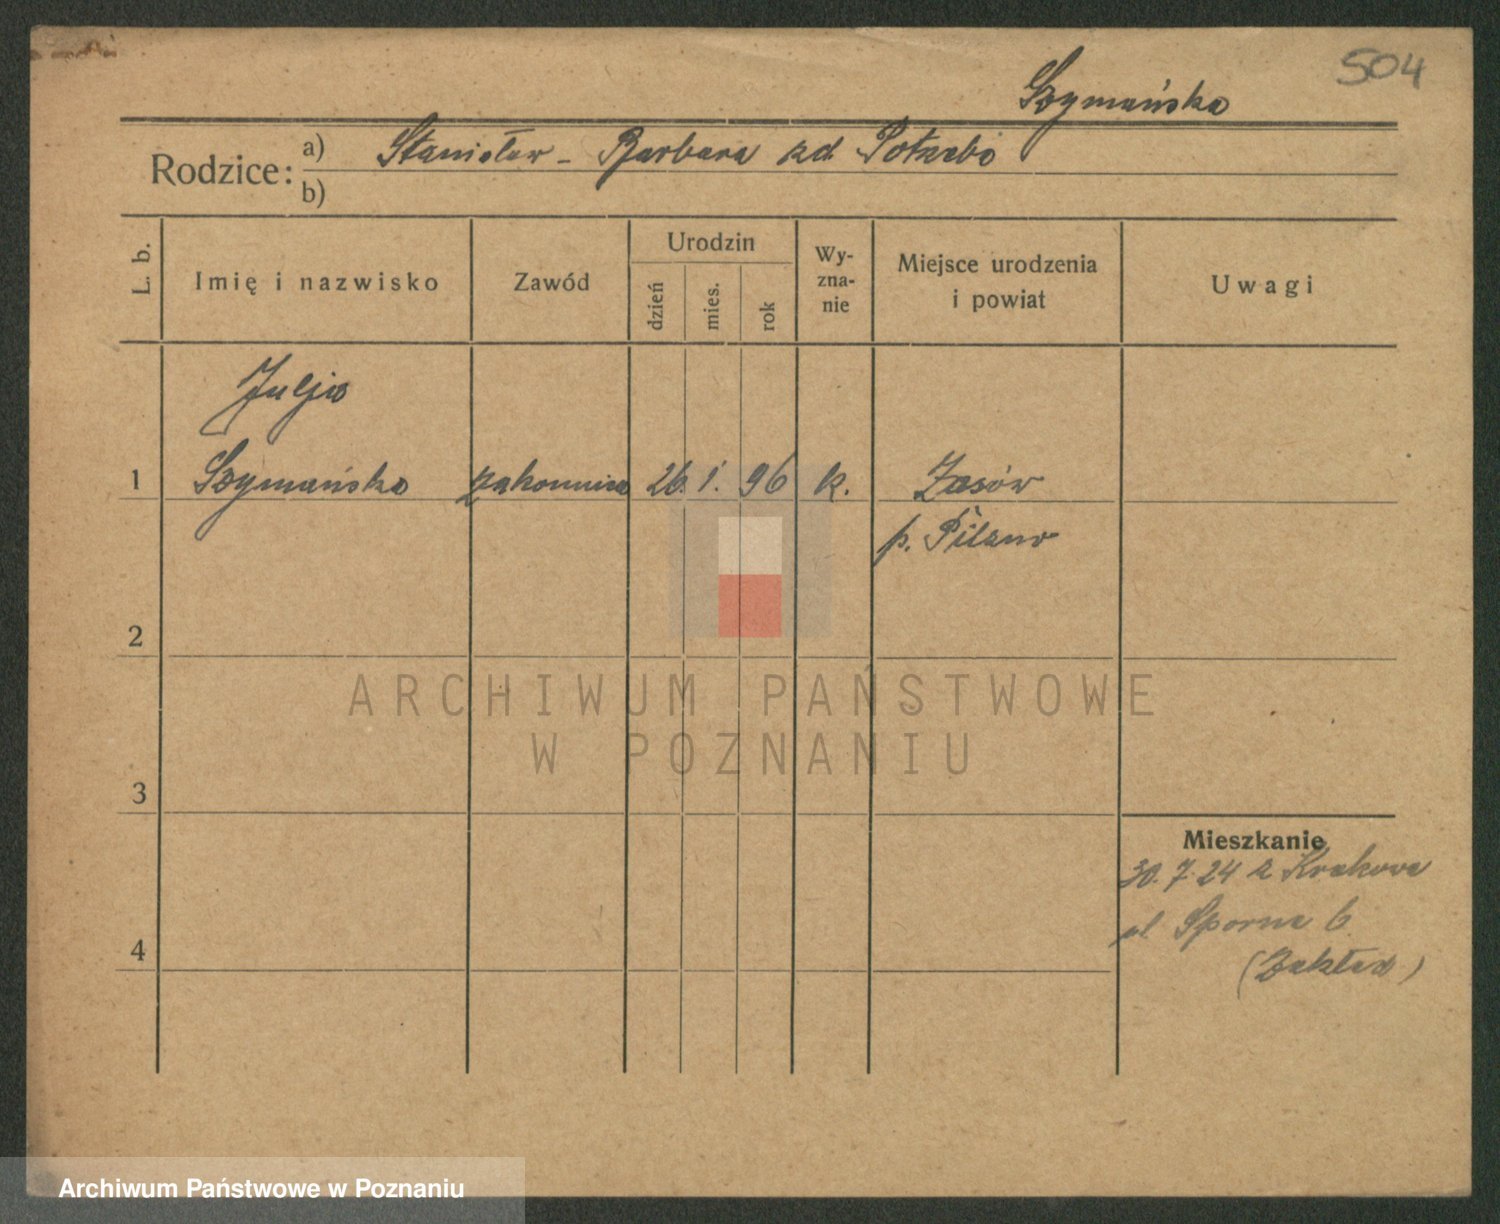 504
Szymańska
Rodzice:
a) Stanisław - Barbara zd. Potrzebo
b)
L. b.
Imię i nazwisko
Zawód
Urodzin
dzień
mies.
rok
Wy-
zna-
nie
Miejsce urodzenia
i powiat
Uwagi
Julja
1 Szymańska zakonnica 26. 1. 96 k. Zasów
p. Pilzno
2
ARCHIWUM PAŃSTWOWE
W POZNANIU
3
Mieszkanie
30.7.24 z Krakowa
ul. Sporna 6
4
(Zakład)
Archiwum Państwowe w Poznaniu